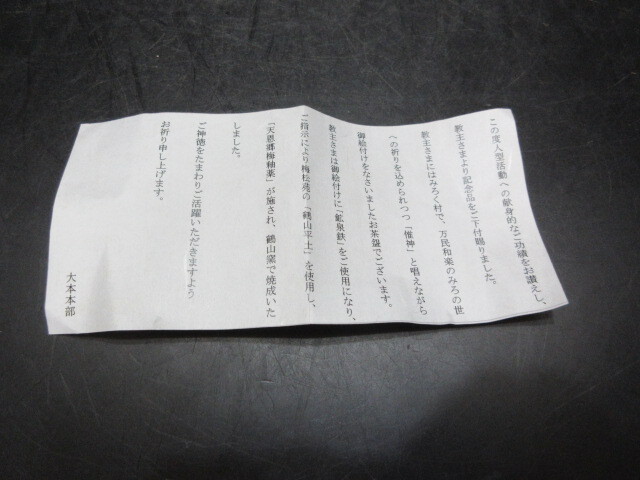 この度人型活動への献身的なご功績をお讃えし、
教主さまより記念品をご下付賜りました。
教主さまにはみろく村で、万民和楽のみろの世
への祈りを込められつつ「惟神」と唱えながら
御絵付けをなさいましたお茶盌でございます。
教主さまは御絵付けに「鉱泉鉄」をご使用になり、
ご指示により梅松苑の「鶴山平土」を使用し、
「天恩郷梅釉薬」が施され、鶴山窯で焼成いた
しました。
ご神徳をたまわりご活躍いただきますよう
お祈り申し上げます。
大本本部